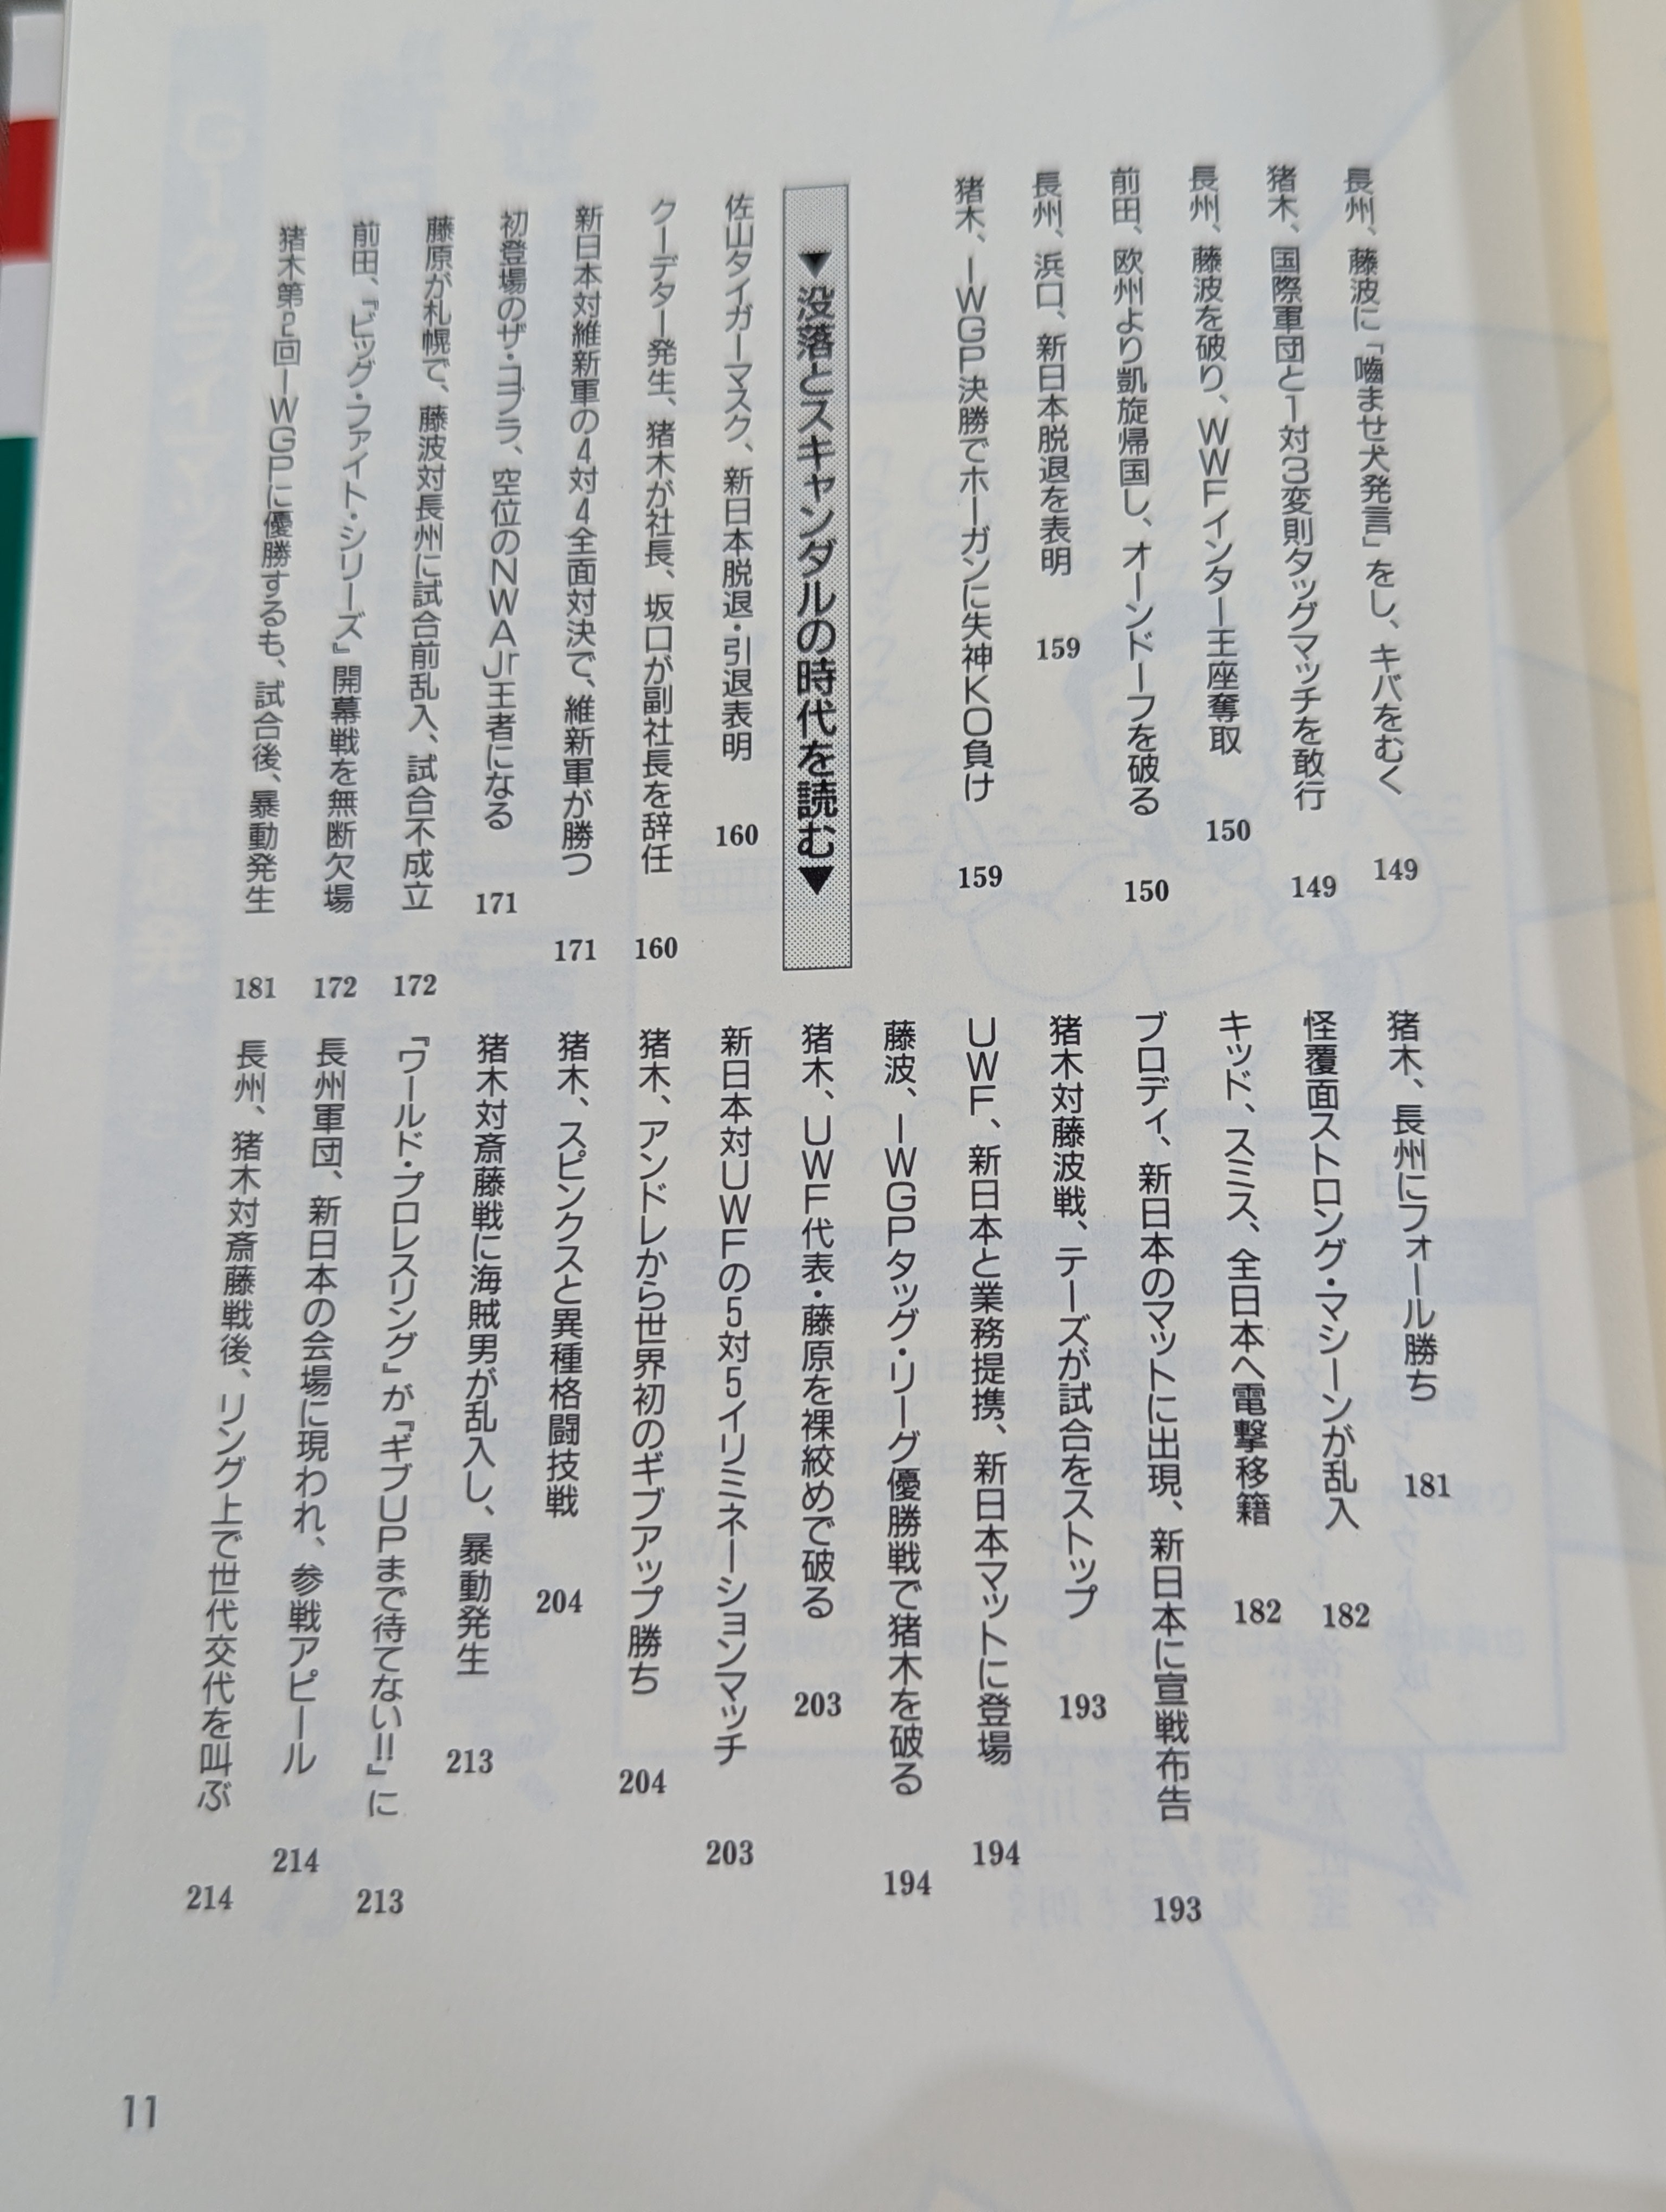 長州、藤波に「嚙ませ犬発言」をし、キバをむく 149
猪木、国際軍団と1対3変則タッグマッチを敢行 149
長州、藤波を破り、WWFインター王座奪取 150
前田、欧州より凱旋帰国し、オーンドーフを破る 150
長州、浜口、新日本脱退を表明 159
猪木、IWGP決勝でホーガンに失神KO負け 159
▼没落とスキャンダルの時代を読む▼
佐山タイガーマスク、新日本脱退・引退表明 160
クーデター発生、猪木が社長、坂口が副社長を辞任 160
新日本対維新軍の4対4全面対決で、維新軍が勝つ 171
初登場のザ・コブラ、空位のNWAJr王者になる 171
藤原が札幌で、藤波対長州に試合前乱入、試合不成立 172
前田、『ビッグ・ファイト・シリーズ』開幕戦を無断欠場 172
猪木第2回IWGPに優勝するも、試合後、暴動発生 181
猪木、長州にフォール勝ち 181
怪覆面ストロング・マシーンが乱入 182
キッド、スミス、全日本へ電撃移籍 182
ブロディ、新日本のマットに出現、新日本に宣戦布告 193
猪木対藤波戦、テーズが試合をストップ 193
UWF、新日本と業務提携、新日本マットに登場 194
藤波、IWGPタッグ・リーグ優勝戦で猪木を破る 194
猪木、UWF代表・藤原を裸絞めで破る 203
新日本対UWFの5対5イリミネーションマッチ 203
猪木、アンドレから世界初のギブアップ勝ち 204
猪木、スピンクスと異種格闘技戦 204
猪木対斎藤戦に海賊男が乱入し、暴動発生 213
『ワールド・プロレスリング』が『ギブUPまで待てない!!』に 213
長州軍団、新日本の会場に現われ、参戦アピール 214
長州、猪木対斎藤戦後、リング上で世代交代を叫ぶ 214
11